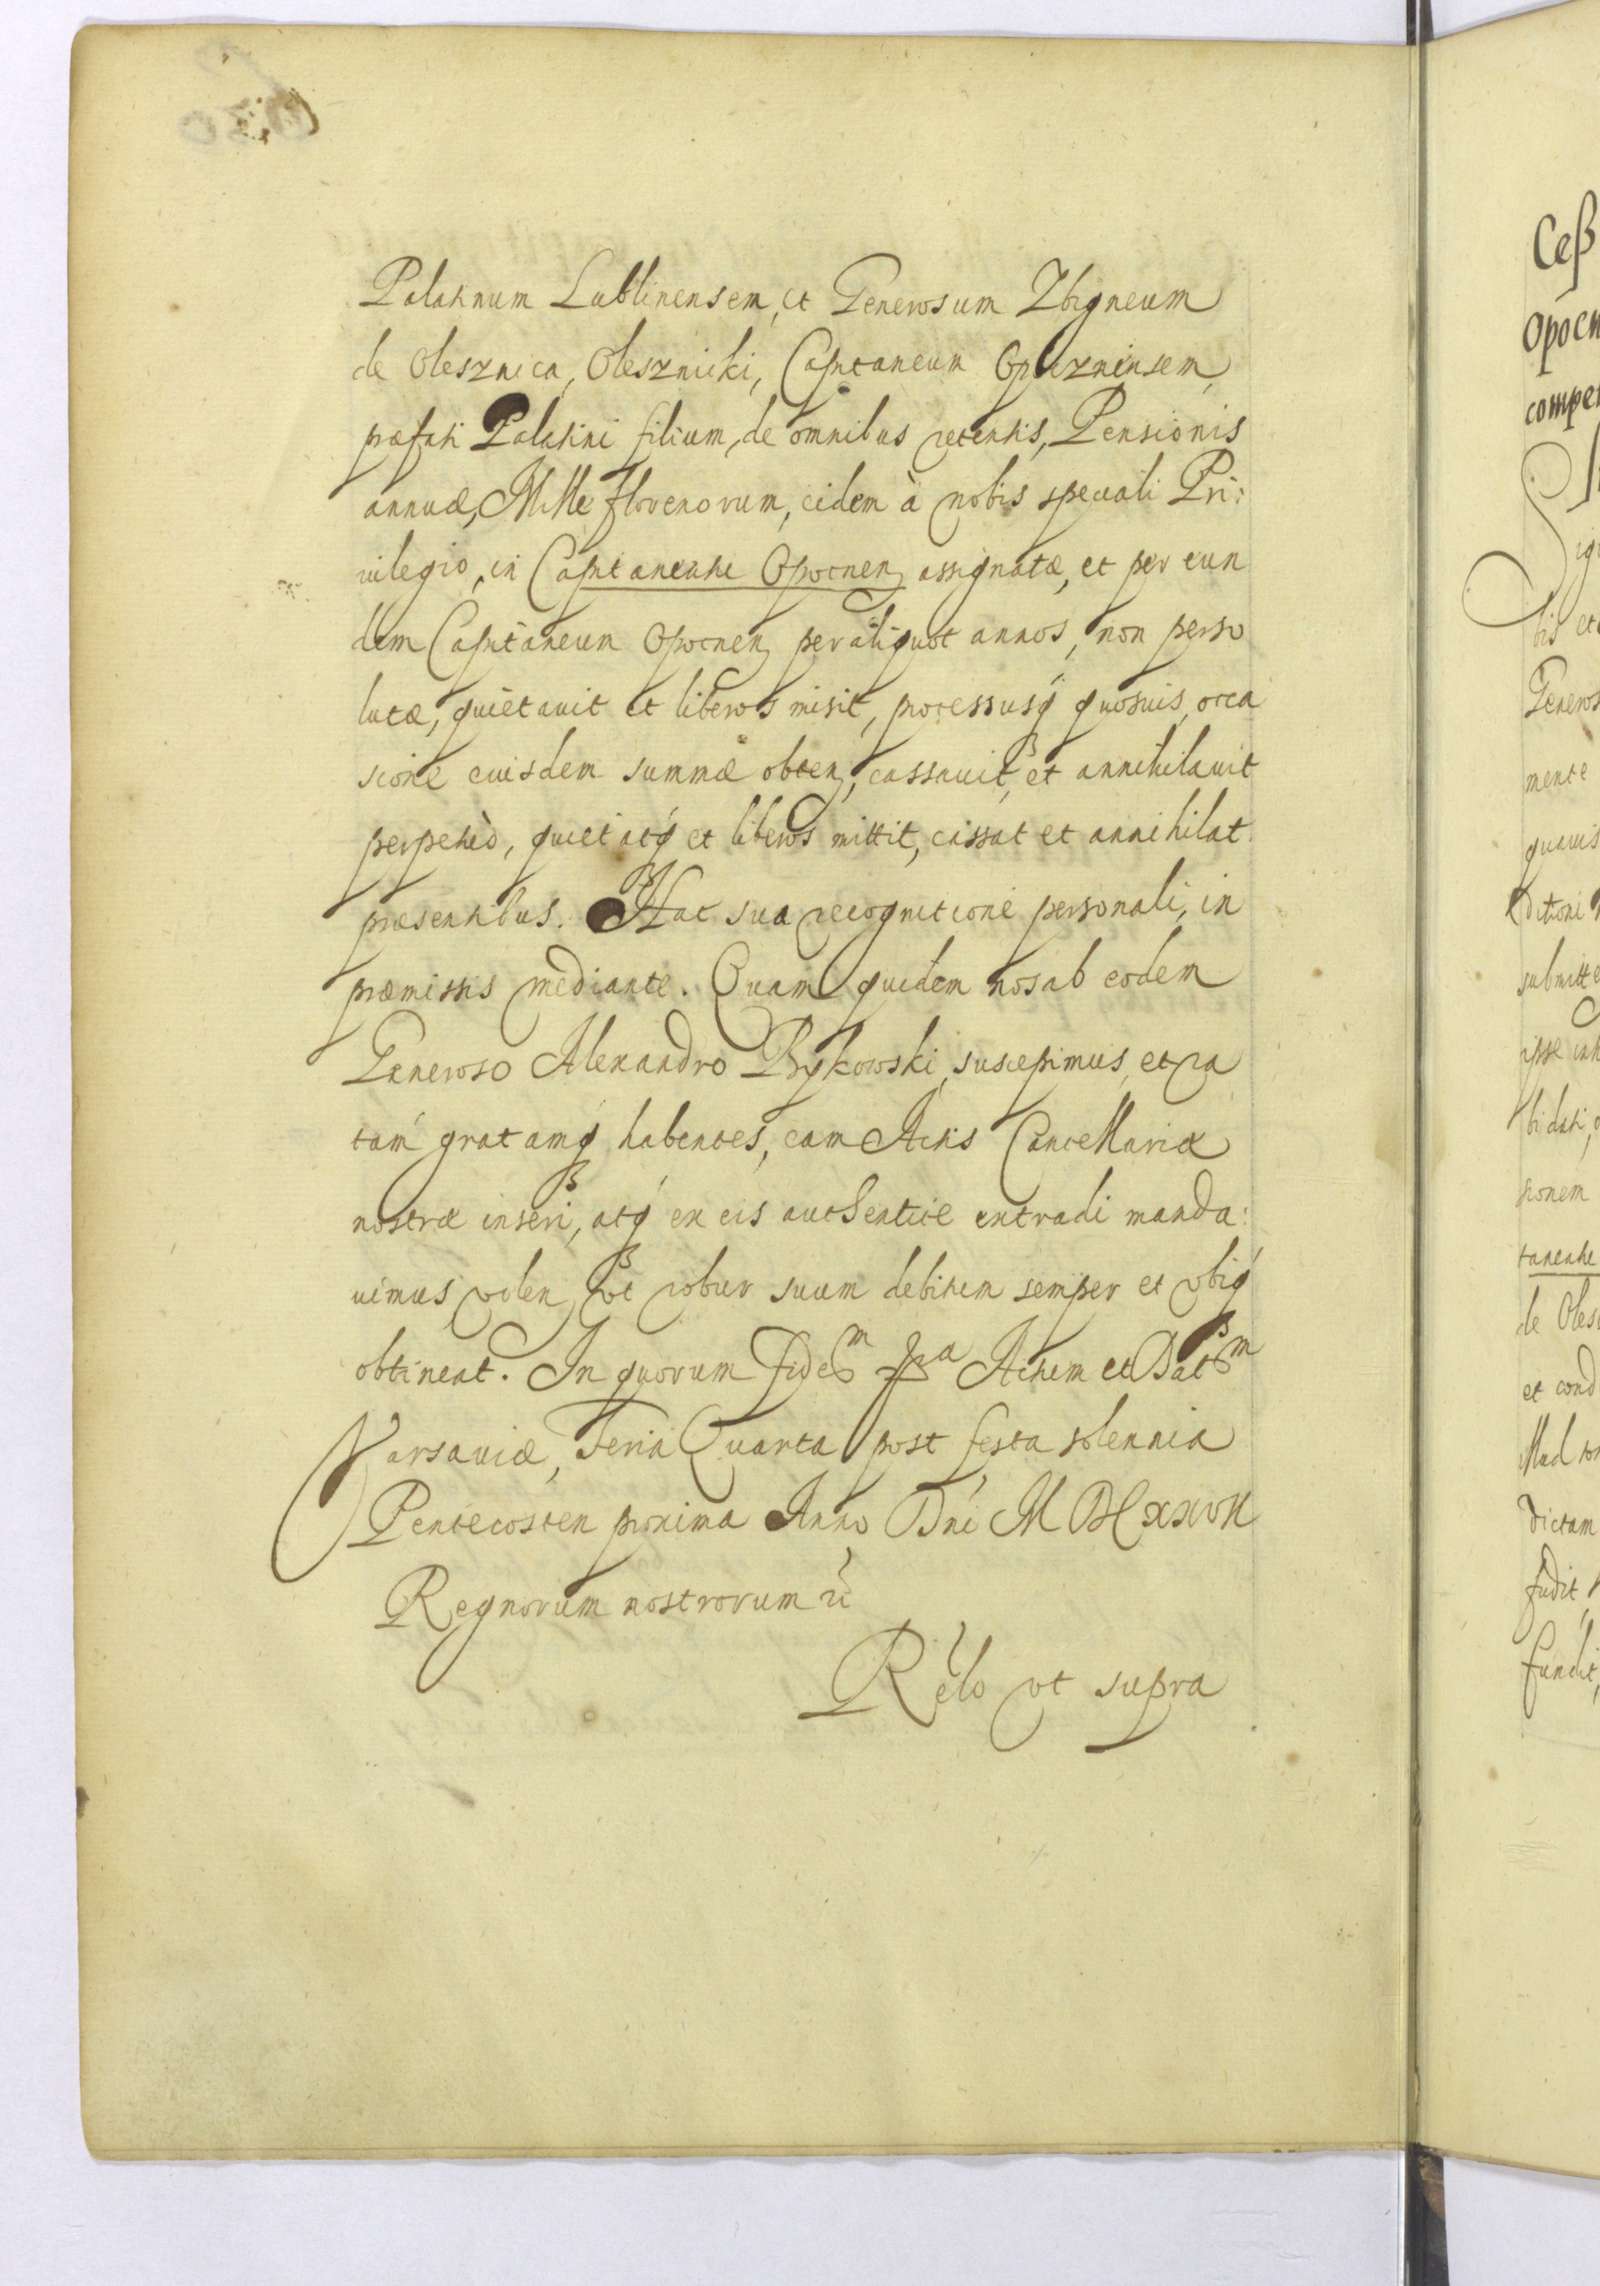 Palatinum Lublinensem, et Generosum Zbigneum
de Olesznica, Olesznicki, Capitaneum Opocznensem,
præfati Palatini filium, de omnibus retentis, Pensionis
annuæ, Mille florenorum, eidem à nobis speciali Pri:
uilegio, in Capitaneatu Opocnen assignatæ, et per eun
dem Capitaneum Opocnen per aliquot annos, non perso
lutæ, quietauit et liberos misit, processusq quosuis, occa
sione euisdem summæ obten, cassauit, et annihilauit
perpetuò, quietatq et liberos mittit, cassat et annihilat
præsentibus. Hac sua recognitione personali, in
præmissis mediante. Quam quidem nos ab eodem
Generoso Alexandro Bykowski, suscepimus, et ra
tam gratamq habentes, eam Actis Cancellariæ
nostræ inseri, atq ex eis authentice extradi manda:
uimus, volen, vt robur suum debitum semper et vbiq
obtineat. In quorum fidem Actum et Datm
Varsauiæ, Feria Quarta post festa solennia
Pentecosten proxima Anno Dni M DC XXVII
Regnorum nostrorum
Relo vt supra
Ceß
Opocn
compet
Sigi
bis et
Generos
mente
quauis
ditioni
submitte
ipse inh
bi dati,
tionem
taneatu
de Oles
et cond
dictam
fudit,
fundit,